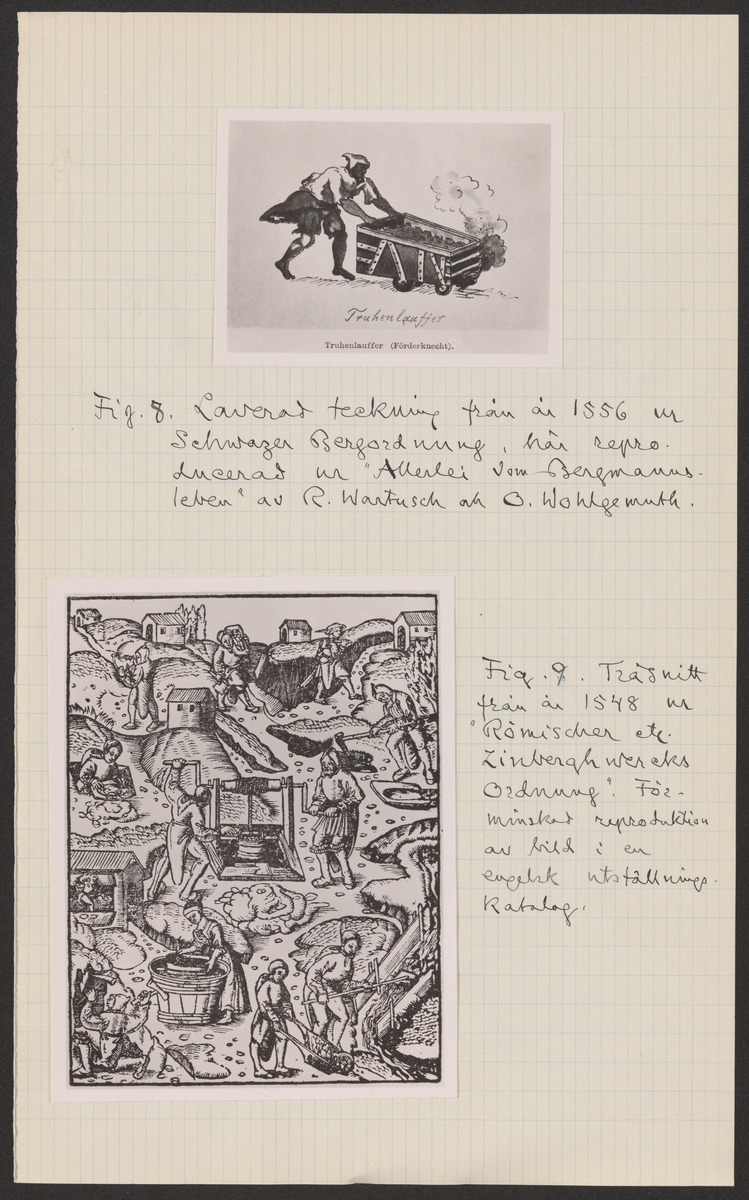 Truhenlauffer
Truhenlauffer (Förderknecht).
Fig. 8. Laverad teckning från år 1556 ur
Schwazer Bergordnung, här repro-
ducerad ur "Allerlei vom Bergmanns-
leben" av R. Wartusch och O. Wohlgemuth.
Fig. 9. Träsnitt
från år 1548 ur
"Römischer etc.
Zinberghwercks
Ordnung". För-
minskad reproduktion
av bild i en
engelsk utställnings-
katalog.